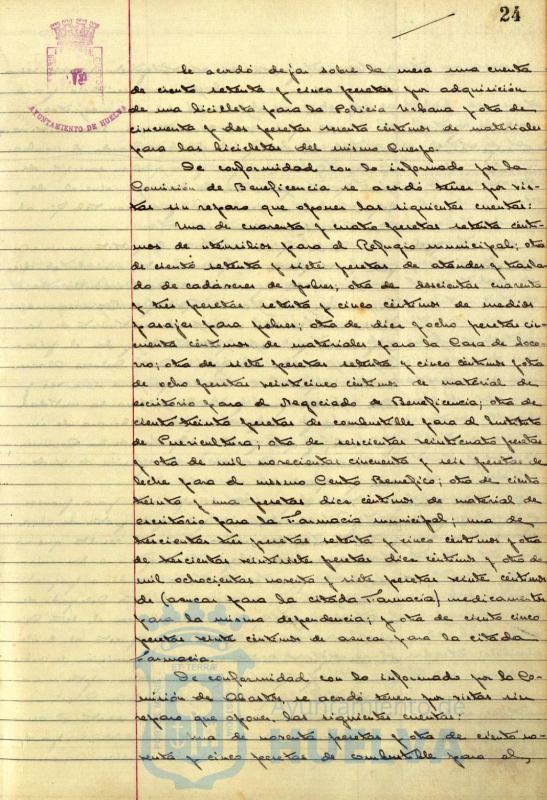 24
AYUNTAMIENTO DE HUELVA
Se acordó dejar sobre la mesa una cuenta
de ciento setenta y cinco pesetas por adquisición
de una bicicleta para la Policía Urbana y otra de
cincuenta y dos pesetas sesenta céntimos de materiales
para las bicicletas del mismo Cuerpo.
De conformidad con lo informado por la
Comisión de Beneficencia se acordó tener por vis-
tas sin reparo que oponer las siguientes cuentas:
Una de cuarenta y cuatro pesetas setenta cénti-
mos de utensilios para el Refugio municipal; otra
de ciento setenta y siete pesetas de ataudes y trasla-
do de cadáveres de pobres; otra de doscientas cuarenta
y tres pesetas setenta y cinco céntimos de medios
pasajes para pobres; otra de diez y ocho pesetas cin-
cuenta céntimos de materiales para la Casa de Soco-
rro; otra de siete pesetas setenta y cinco céntimos y otra
de ocho pesetas veinticinco céntimos de material de
escritorio para el Negociado de Beneficencia; otra de
ciento treinta pesetas de combustible para el Instituto
de Puericultura; otra de seiscientas veinticuatro pesetas
y otra de mil novecientas cincuenta y seis pesetas de
leche para el mismo Centro Benéfico; otra de ciento
treinta y una pesetas diez céntimos de material de
escritorio para la Farmacia municipal; una de
trescientas tres pesetas setenta y cinco céntimos y otra
de trescientas veintisiete pesetas diez céntimos y otra de
mil ochocientas noventa y siete pesetas veinte céntimos
de (azucar para la citada Farmacia) medicamentos
para la misma dependencia; y otra de ciento cinco
pesetas veinte céntimos de azucar para la citada
Farmacia.
De conformidad con lo informado por la Co-
misión de Abastos, se acordó tener por vistas sin
reparo que oponer, las siguientes cuentas:
Una de noventa pesetas y otra de ciento no-
venta y cinco pesetas de combustible para el,
Ayuntamiento de
HUELVA